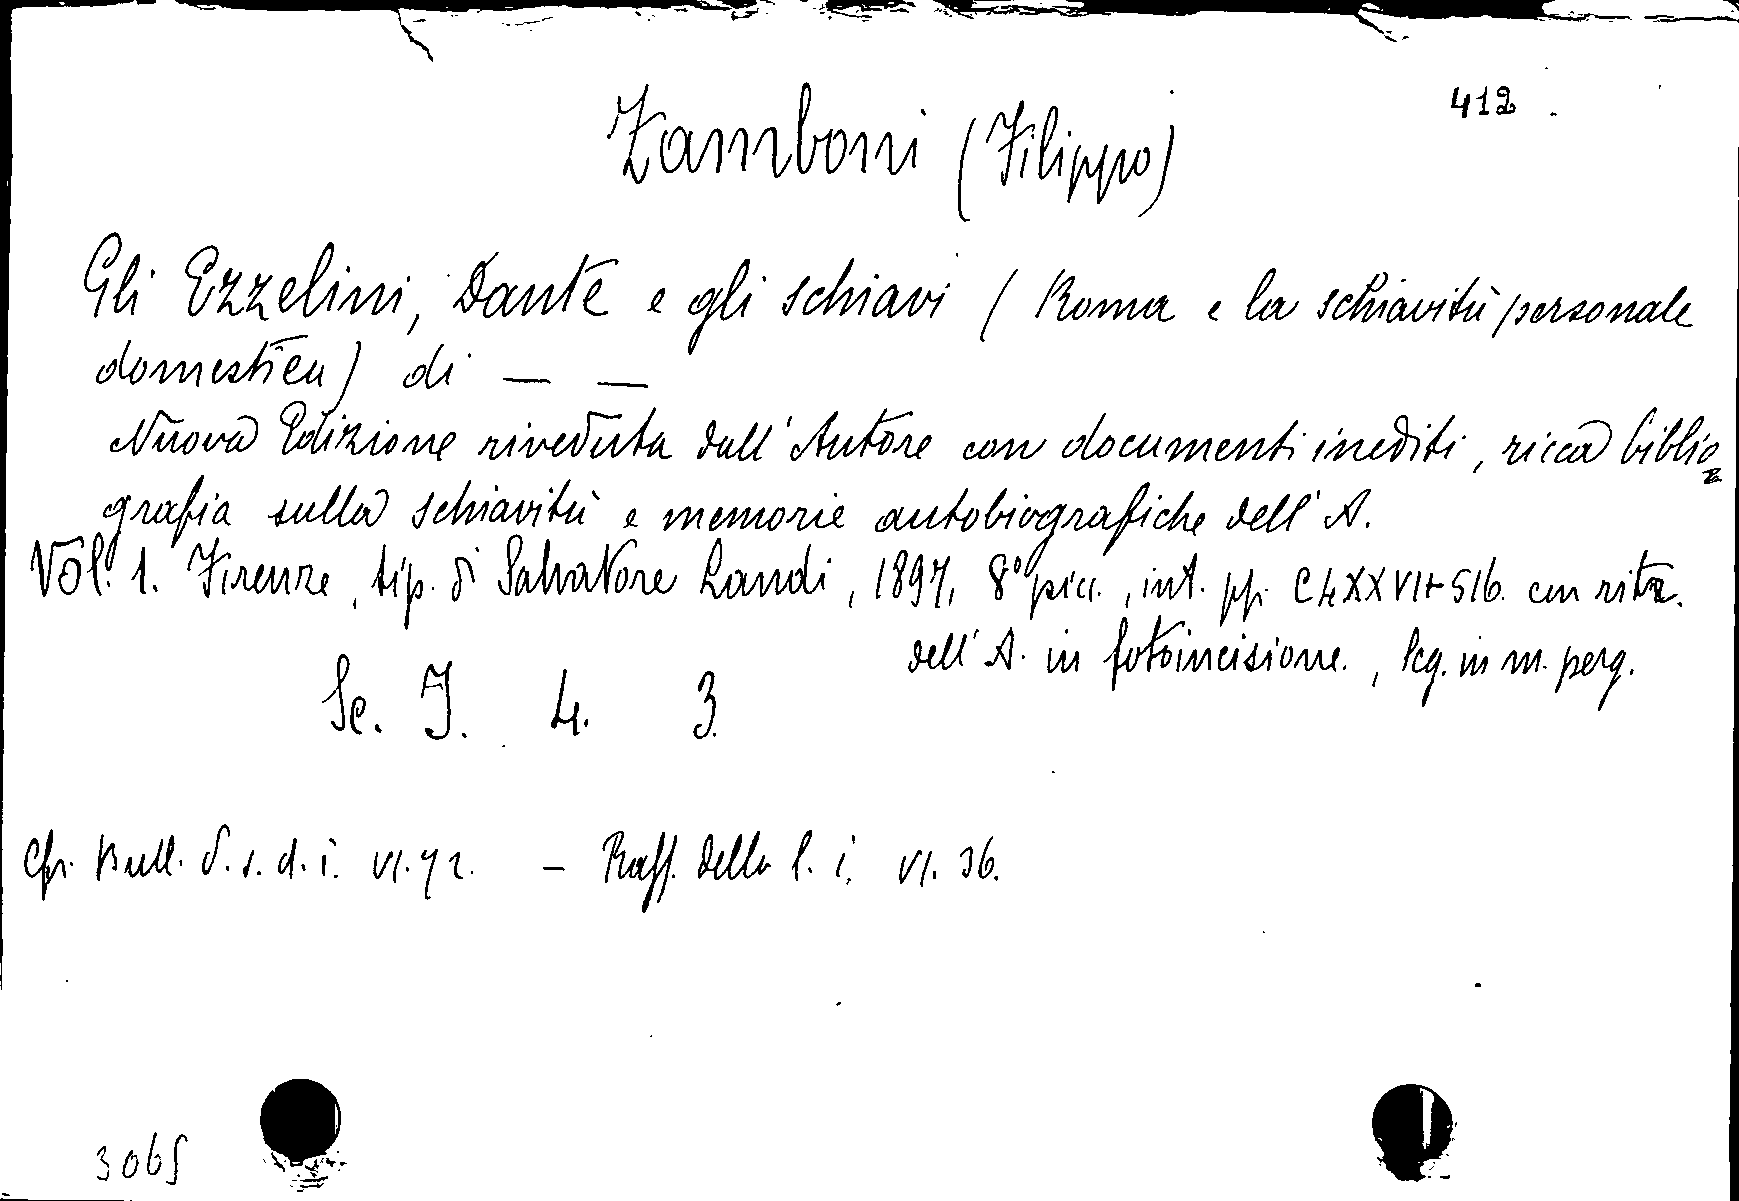 412
Zamboni (Filippo)
Gli Ezzelini, Dante e gli schiavi (Roma e la schiavitù personale
domestica) di — —
Nuova Edizione riveduta dall'Autore con documenti inediti, ricca biblio
grafia sulla schiavitù e memorie autobiografiche dell'A.
Vol. 1. Firenze, tip. di Salvatore Landi, 1897, 8° picc., int. pp. CLXXVI+516. con ritr.
dell'A. in fotoincisione., leg. in m. perg.
Sc. I. 4. 3.
Cfr. Bull. d. s. d. i. VI. 72. — Rass. della l. i. VI. 36.
3065